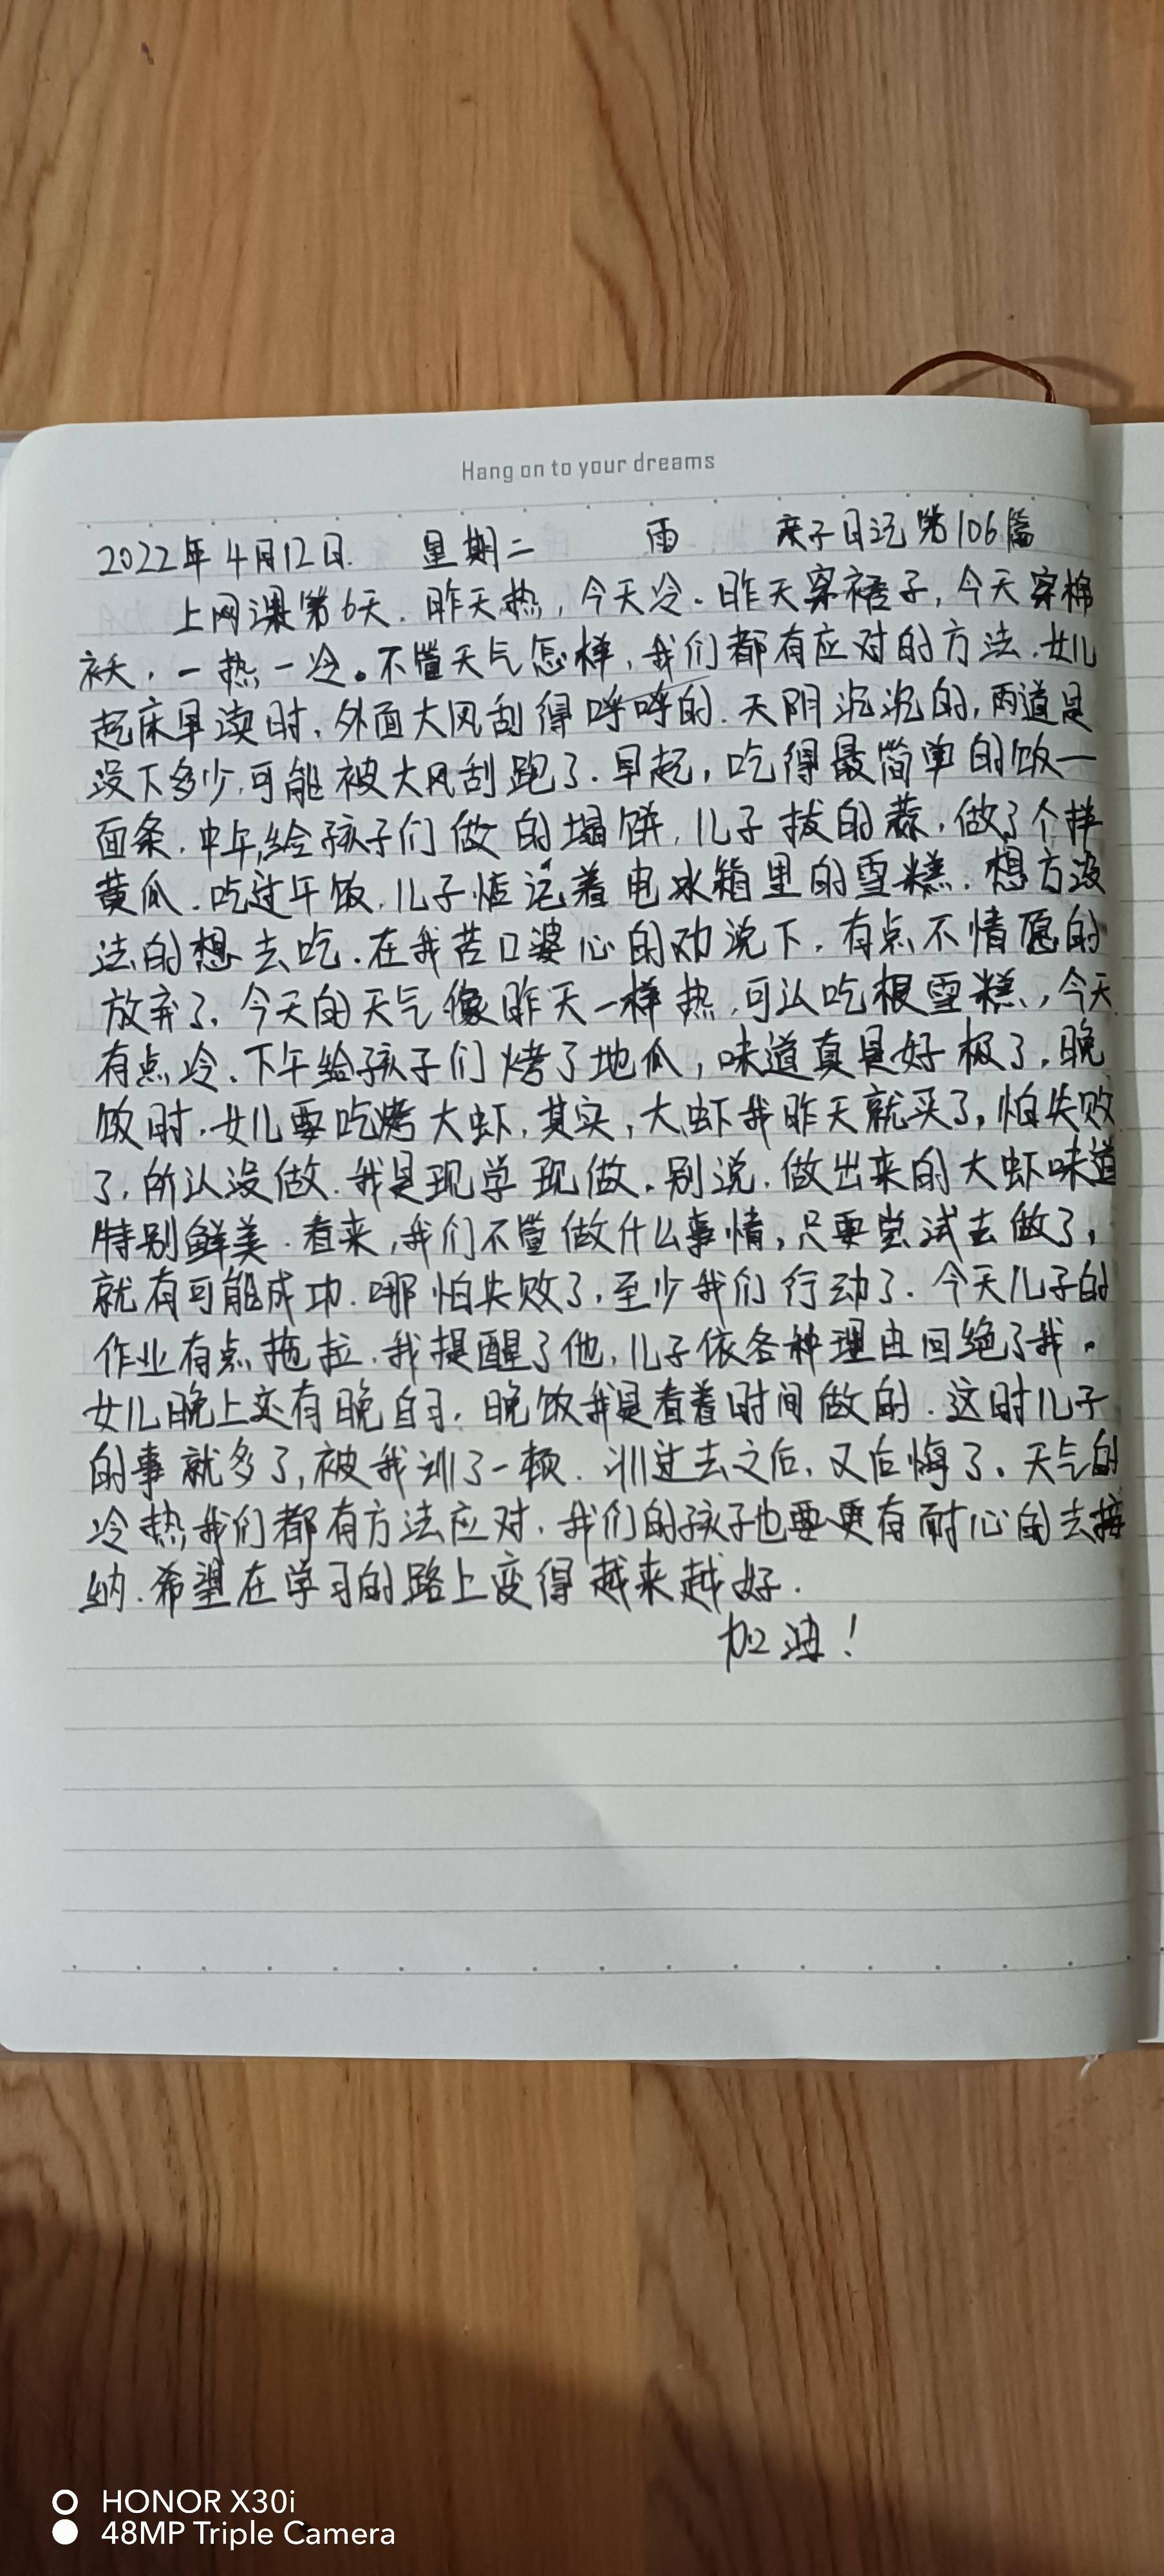 Hang on to your dreams
2022年4月12日. 星期二 雨 亲子日记第106篇
上网课第6天. 昨天热,今天冷.昨天穿裙子,今天穿棉
袄.一热一冷。不管天气怎样,我们都有应对的方法.女儿
起床早读时,外面大风刮得呼呼的.天阴沉沉的,雨道是
没下多少,可能被大风刮跑了.早起,吃得最简单的饭一
面条.中午,给孩子们做的塌饼,儿子拔的蒜,做了个拌
黄瓜.吃过午饭,儿子惦记着电冰箱里的雪糕.想方设
法的想去吃.在我苦口婆心的劝说下,有点不情愿的
放弃了.今天的天气像昨天一样热,可以吃根雪糕,今天
有点冷.下午给孩子们烤了地瓜,味道真是好极了.晚
饭时.女儿要吃烤大虾,其实,大虾我昨天就买了,怕失败
了,所以没做.我是现学现做.别说,做出来的大虾味道
特别鲜美.看来,我们不管做什么事情,只要尝试去做了,
就有可能成功.哪怕失败了,至少我们行动了.今天儿子的
作业有点拖拉.我提醒了他,儿子依各种理由回绝了我。
女儿晚上还有晚自习.晚饭我是看着时间做的.这时儿子
的事就多了,被我训了一顿.训过去之后,又后悔了.天气的
冷热我们都有方法应对.我们的孩子也要更有耐心的去接
纳.希望在学习的路上变得越来越好.
加油!
HONOR X30i
48MP Triple Camera